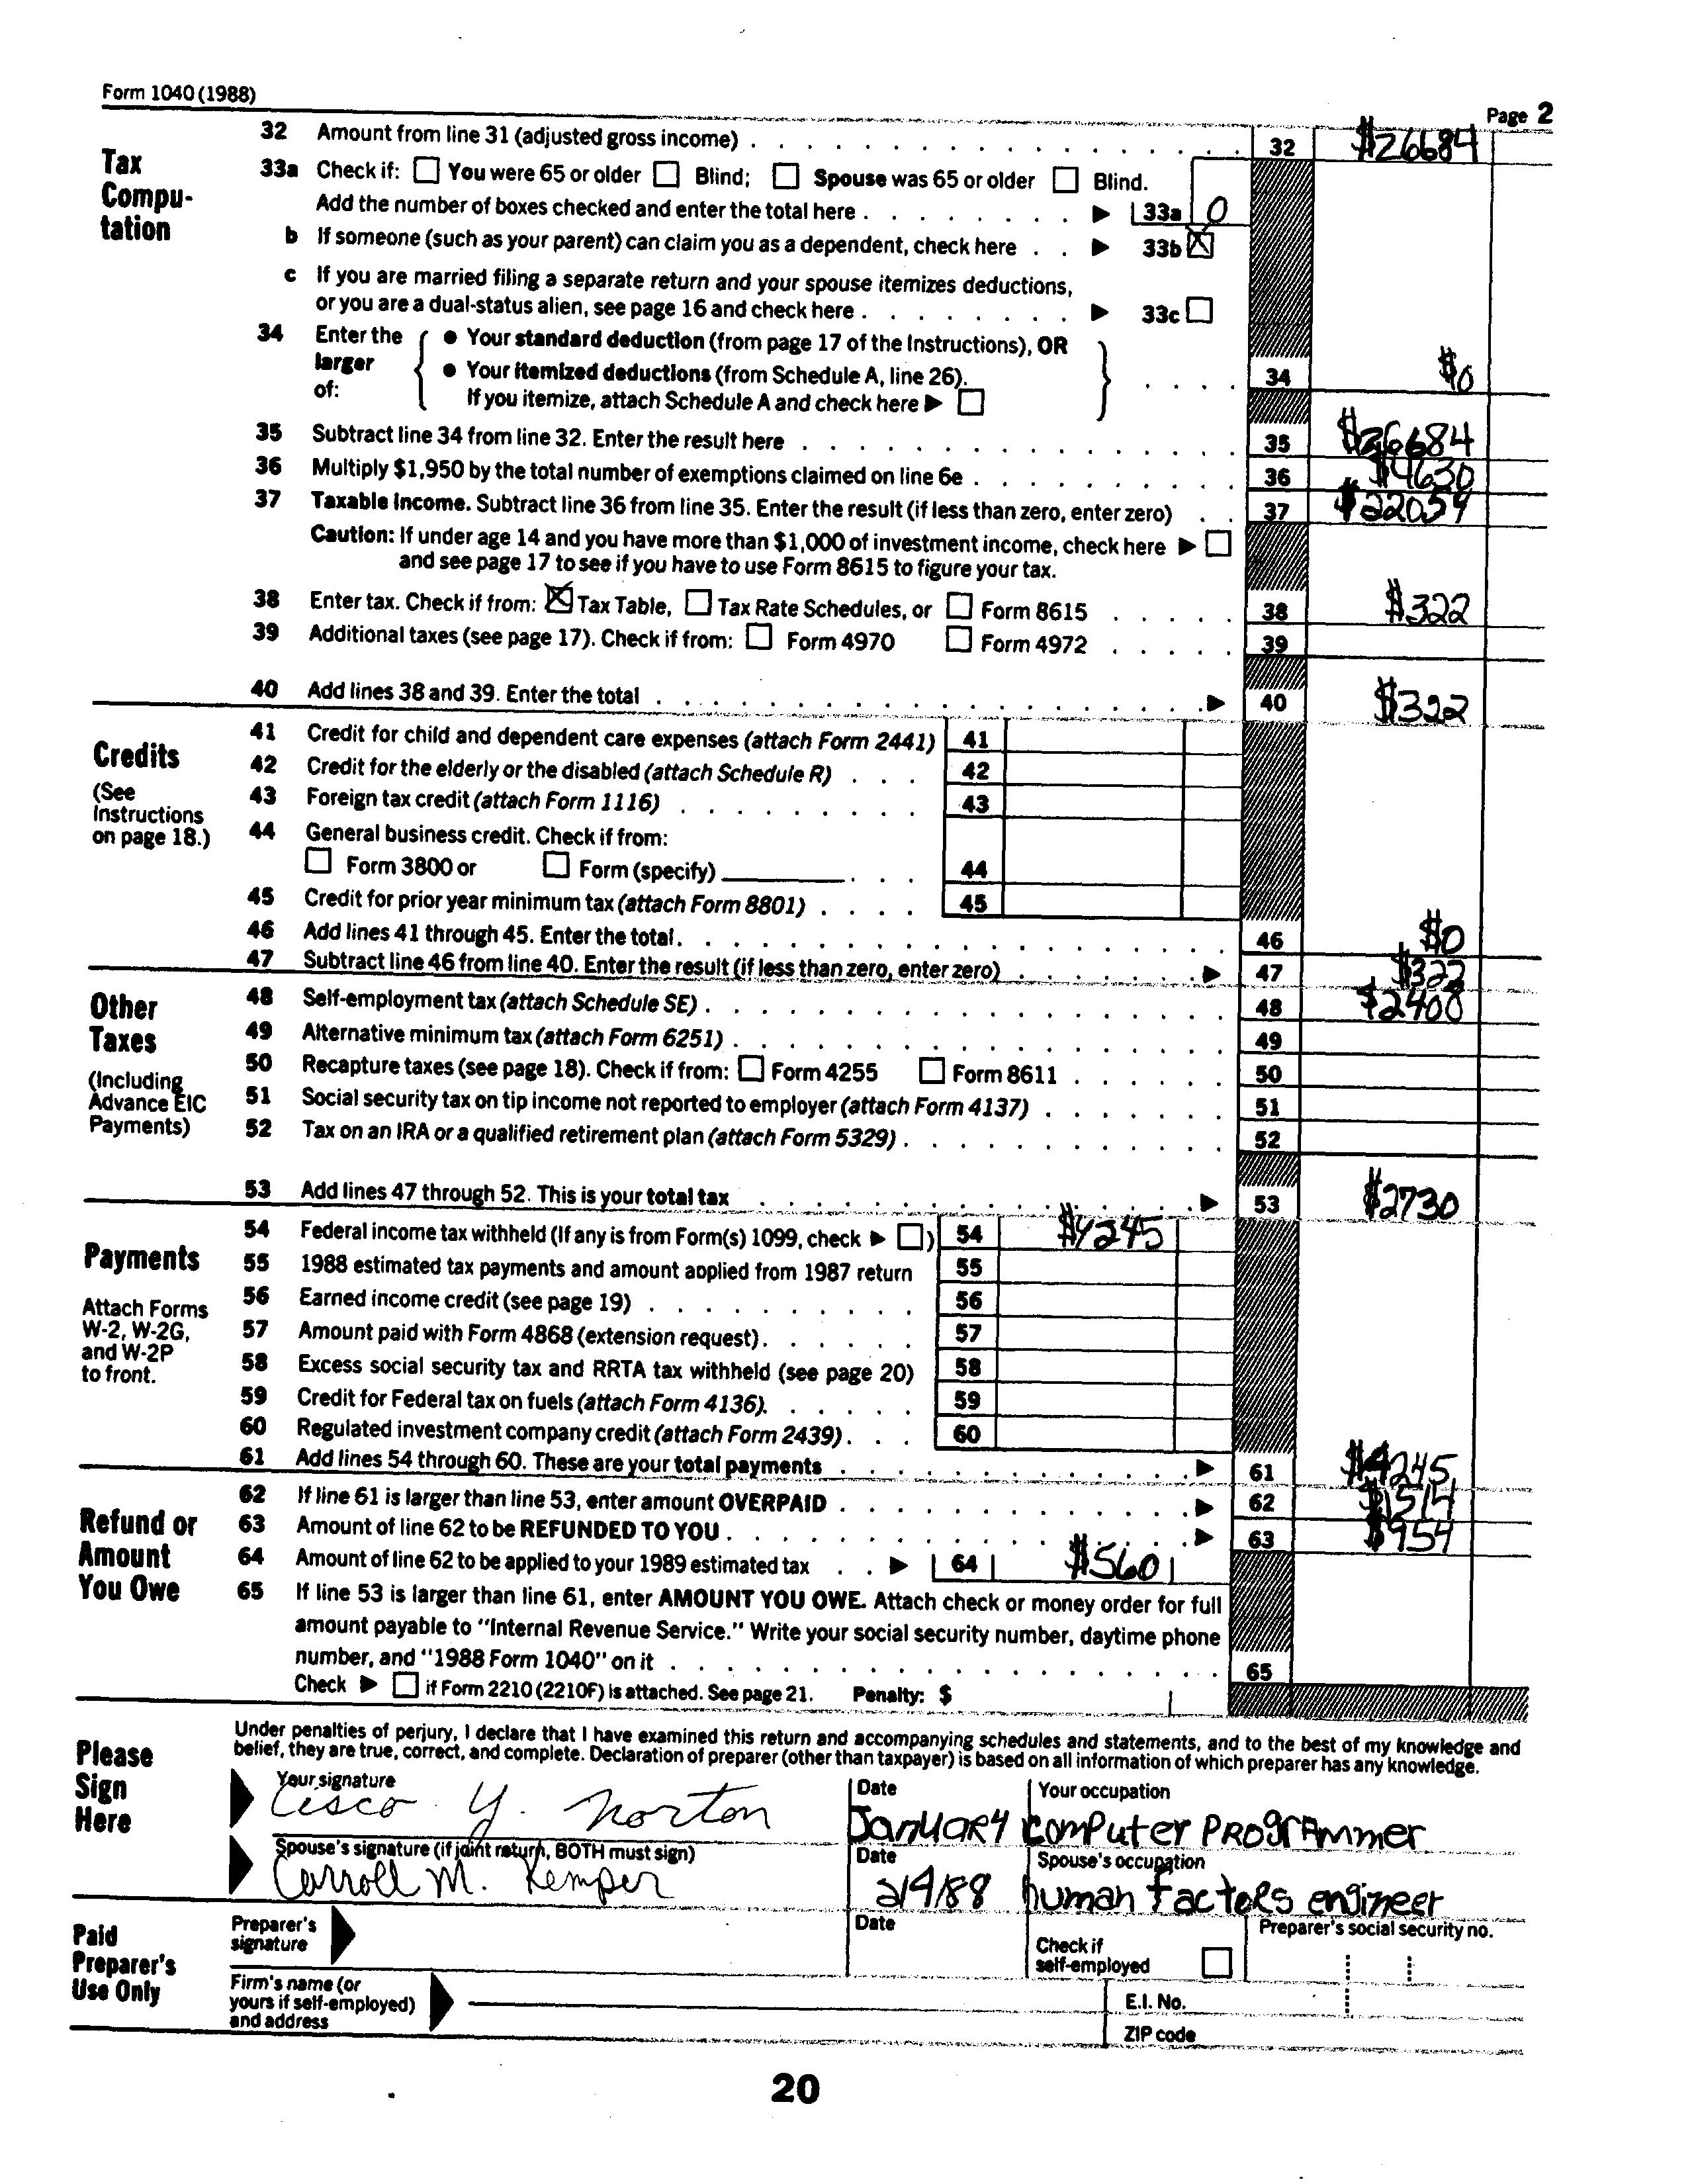 Form 1040 (1988)
Page 2
Tax Compu- tation
32 Amount from line 31 (adjusted gross income) 32 $26684
33a Check if: You were 65 or older Blind; Spouse was 65 or older Blind.
Add the number of boxes checked and enter the total here 33a 0
b If someone (such as your parent) can claim you as a dependent, check here 33b X
c If you are married filing a separate return and your spouse itemizes deductions,
or you are a dual-status alien, see page 16 and check here 33c
34 Enter the larger of:
• Your standard deduction (from page 17 of the Instructions), OR
• Your itemized deductions (from Schedule A, line 26).
If you itemize, attach Schedule A and check here 34 $0
35 Subtract line 34 from line 32. Enter the result here 35 $26684
36 Multiply $1,950 by the total number of exemptions claimed on line 6e 36 $4630
37 Taxable income. Subtract line 36 from line 35. Enter the result (if less than zero, enter zero) 37 $22054
Caution: If under age 14 and you have more than $1,000 of investment income, check here
and see page 17 to see if you have to use Form 8615 to figure your tax.
38 Enter tax. Check if from: X Tax Table, Tax Rate Schedules, or Form 8615 38 $322
39 Additional taxes (see page 17). Check if from: Form 4970 Form 4972 39
40 Add lines 38 and 39. Enter the total 40 $322
Credits
(See Instructions on page 18.)
41 Credit for child and dependent care expenses (attach Form 2441) 41
42 Credit for the elderly or the disabled (attach Schedule R) 42
43 Foreign tax credit (attach Form 1116) 43
44 General business credit. Check if from:
Form 3800 or Form (specify) 44
45 Credit for prior year minimum tax (attach Form 8801) 45
46 Add lines 41 through 45. Enter the total. 46 $0
47 Subtract line 46 from line 40. Enter the result (if less than zero, enter zero) 47 $322
Other Taxes
(Including Advance EIC Payments)
48 Self-employment tax (attach Schedule SE) 48 $2408
49 Alternative minimum tax (attach Form 6251) 49
50 Recapture taxes (see page 18). Check if from: Form 4255 Form 8611 50
51 Social security tax on tip income not reported to employer (attach Form 4137) 51
52 Tax on an IRA or a qualified retirement plan (attach Form 5329) 52
53 Add lines 47 through 52. This is your total tax 53 $2730
Payments
Attach Forms W-2, W-2G, and W-2P to front.
54 Federal income tax withheld (If any is from Form(s) 1099, check ) 54 $4245
55 1988 estimated tax payments and amount applied from 1987 return 55
56 Earned income credit (see page 19) 56
57 Amount paid with Form 4868 (extension request) 57
58 Excess social security tax and RRTA tax withheld (see page 20) 58
59 Credit for Federal tax on fuels (attach Form 4136). 59
60 Regulated investment company credit (attach Form 2439) 60
61 Add lines 54 through 60. These are your total payments 61 $4245
Refund or Amount You Owe
62 If line 61 is larger than line 53, enter amount OVERPAID 62 $1514
63 Amount of line 62 to be REFUNDED TO YOU 63 $954
64 Amount of line 62 to be applied to your 1989 estimated tax 64 $560
65 If line 53 is larger than line 61, enter AMOUNT YOU OWE. Attach check or money order for full
amount payable to "Internal Revenue Service." Write your social security number, daytime phone
number, and "1988 Form 1040" on it 65
Check if Form 2210 (2210F) is attached. See page 21. Penalty: $
Please Sign Here
Under penalties of perjury, I declare that I have examined this return and accompanying schedules and statements, and to the best of my knowledge and
belief, they are true, correct, and complete. Declaration of preparer (other than taxpayer) is based on all information of which preparer has any knowledge.
Your signature Date Your occupation
Cisco Y. Norton January Computer Programmer
Spouse's signature (if joint return, BOTH must sign) Date Spouse's occupation
Carroll M. Kemper 2/4/88 human factors engineer
Paid Preparer's Use Only
Preparer's signature Date Check if self-employed Preparer's social security no.
Firm's name (or yours if self-employed) and address
E.I. No.
ZIP code
20